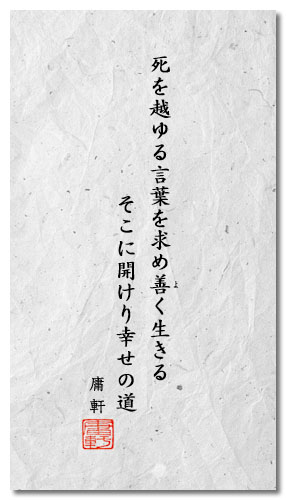 死を越ゆる言葉を求め善く生きる
よ
そこに開けり幸せの道
庸軒
庸軒